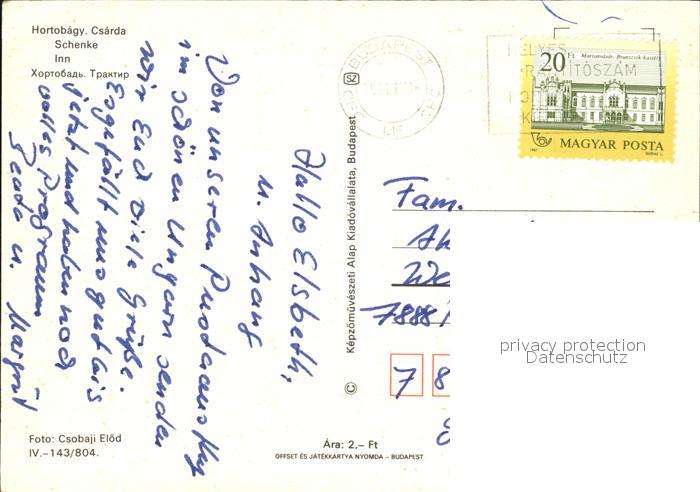 Hortobágy. Csárda
Schenke
Inn
Хортобадь. Трактир
Hallo Elsbeth,
u. Anhang
Von unseren
im schönen Ungarn senden
wir Euch viele Grüße.
Es gefällt uns gut bis
jetzt und haben noch
volles Programm
u. Margrit
Foto: Csobaji Előd
IV.–143/804.
Ára: 2,– Ft
OFFSET ÉS JÁTÉKKÁRTYA NYOMDA – BUDAPEST
© Képzőművészeti Alap Kiadóvállalata, Budapest
SZ
BUDAPEST
HELYES
IRÁNYÍTÓSZÁM
20 Ft
Martonvásár, Brunszvik-kastély
MAGYAR POSTA
1987
Fam.
7888
7 8
privacy protection
Datenschutz